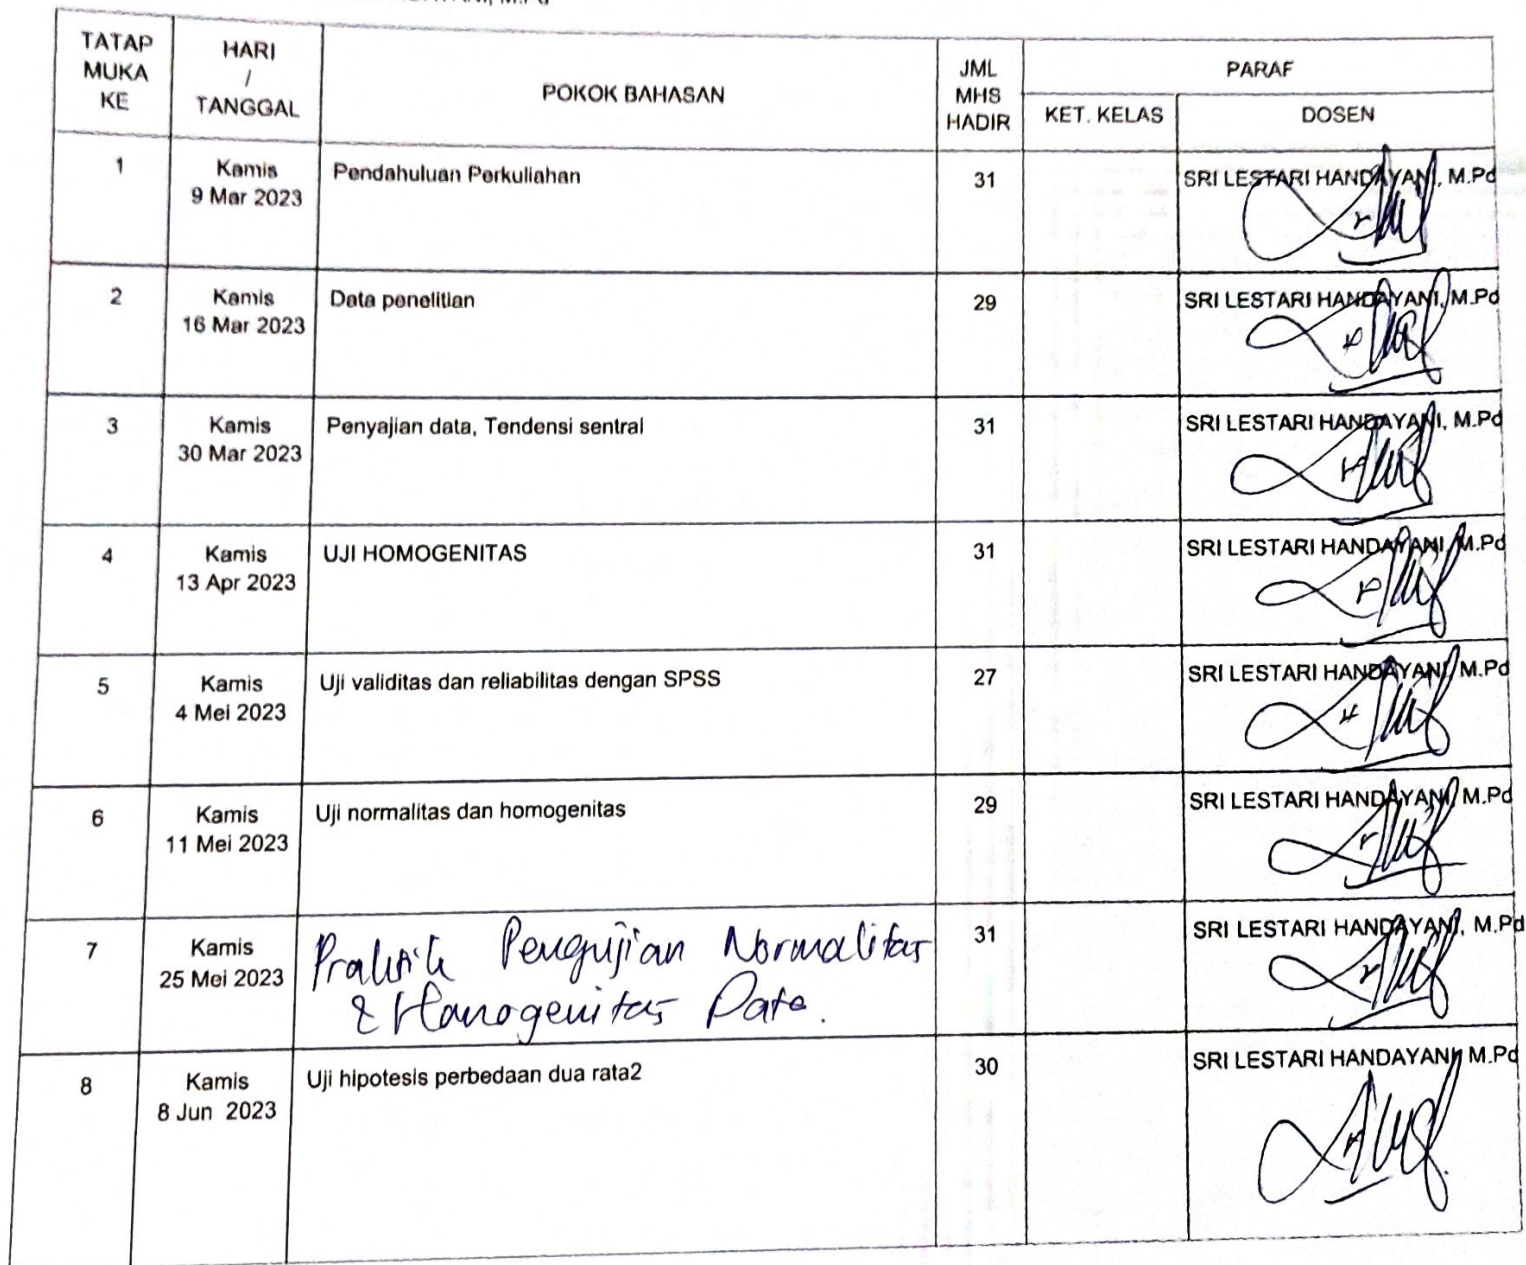 TATAP MUKA KE
HARI / TANGGAL
POKOK BAHASAN
JML MHS HADIR
PARAF
KET. KELAS
DOSEN
1
Kamis
9 Mar 2023
Pendahuluan Perkuliahan
31
SRI LESTARI HANDAYANI, M.Pd
2
Kamis
16 Mar 2023
Data penelitian
29
SRI LESTARI HANDAYANI, M.Pd
3
Kamis
30 Mar 2023
Penyajian data, Tendensi sentral
31
SRI LESTARI HANDAYANI, M.Pd
4
Kamis
13 Apr 2023
UJI HOMOGENITAS
31
SRI LESTARI HANDAYANI, M.Pd
5
Kamis
4 Mei 2023
Uji validitas dan reliabilitas dengan SPSS
27
SRI LESTARI HANDAYANI, M.Pd
6
Kamis
11 Mei 2023
Uji normalitas dan homogenitas
29
SRI LESTARI HANDAYANI, M.Pd
7
Kamis
25 Mei 2023
Praktik Pengujian Normalitas
& Homogenitas Data.
31
SRI LESTARI HANDAYANI, M.Pd
8
Kamis
8 Jun 2023
Uji hipotesis perbedaan dua rata2
30
SRI LESTARI HANDAYANI, M.Pd